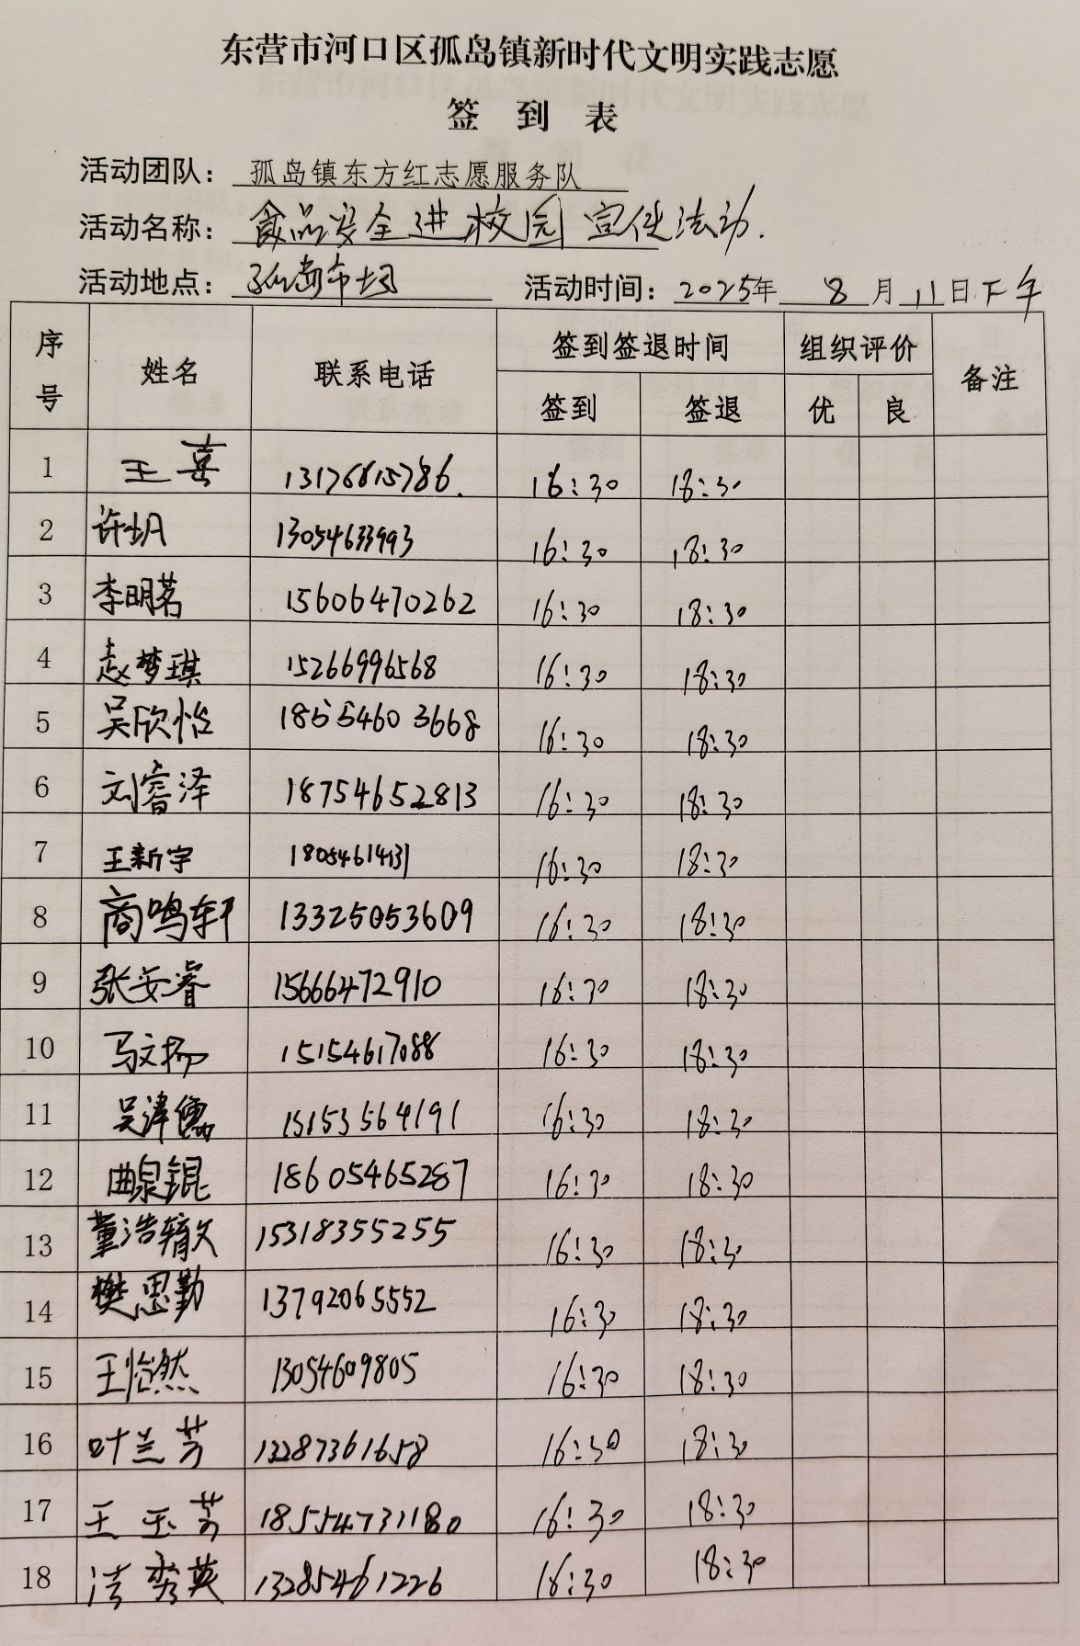 东营市河口区孤岛镇新时代文明实践志愿
签 到 表
活动团队：孤岛镇东方红志愿服务队
活动名称：食品安全进校园宣传活动.
活动地点：孤岛市场 活动时间：2025年 8 月 11 日下午
序号 姓名 联系电话 签到签退时间 组织评价 备注
签到 签退 优 良
1 王喜 13176815786. 16:30 18:30
2 许 13054633993 16:30 18:30
3 李明茗 15606470262 16:30 18:30
4 赵梦琪 15266996568 16:30 18:30
5 吴欣怡 18554603668 16:30 18:30
6 刘睿泽 18754652813 16:30 18:30
7 王新宇 18054614131 16:30 18:30
8 商鸣轩 13325053609 16:30 18:30
9 张安睿 15666472910 16:30 18:30
10 马文扬 15154617088 16:30 18:30
11 吴泽儒 15153564191 16:30 18:30
12 曲泉锟 18605465287 16:30 18:30
13 董浩 15318355255 16:30 18:30
14 樊思勤 13792065552 16:30 18:30
15 王怡然 13054609805 16:30 18:30
16 叶兰芳 13287361658 16:30 18:30
17 王玉芳 18554731180 16:30 18:30
18 秀英 13285461226 16:30 18:30